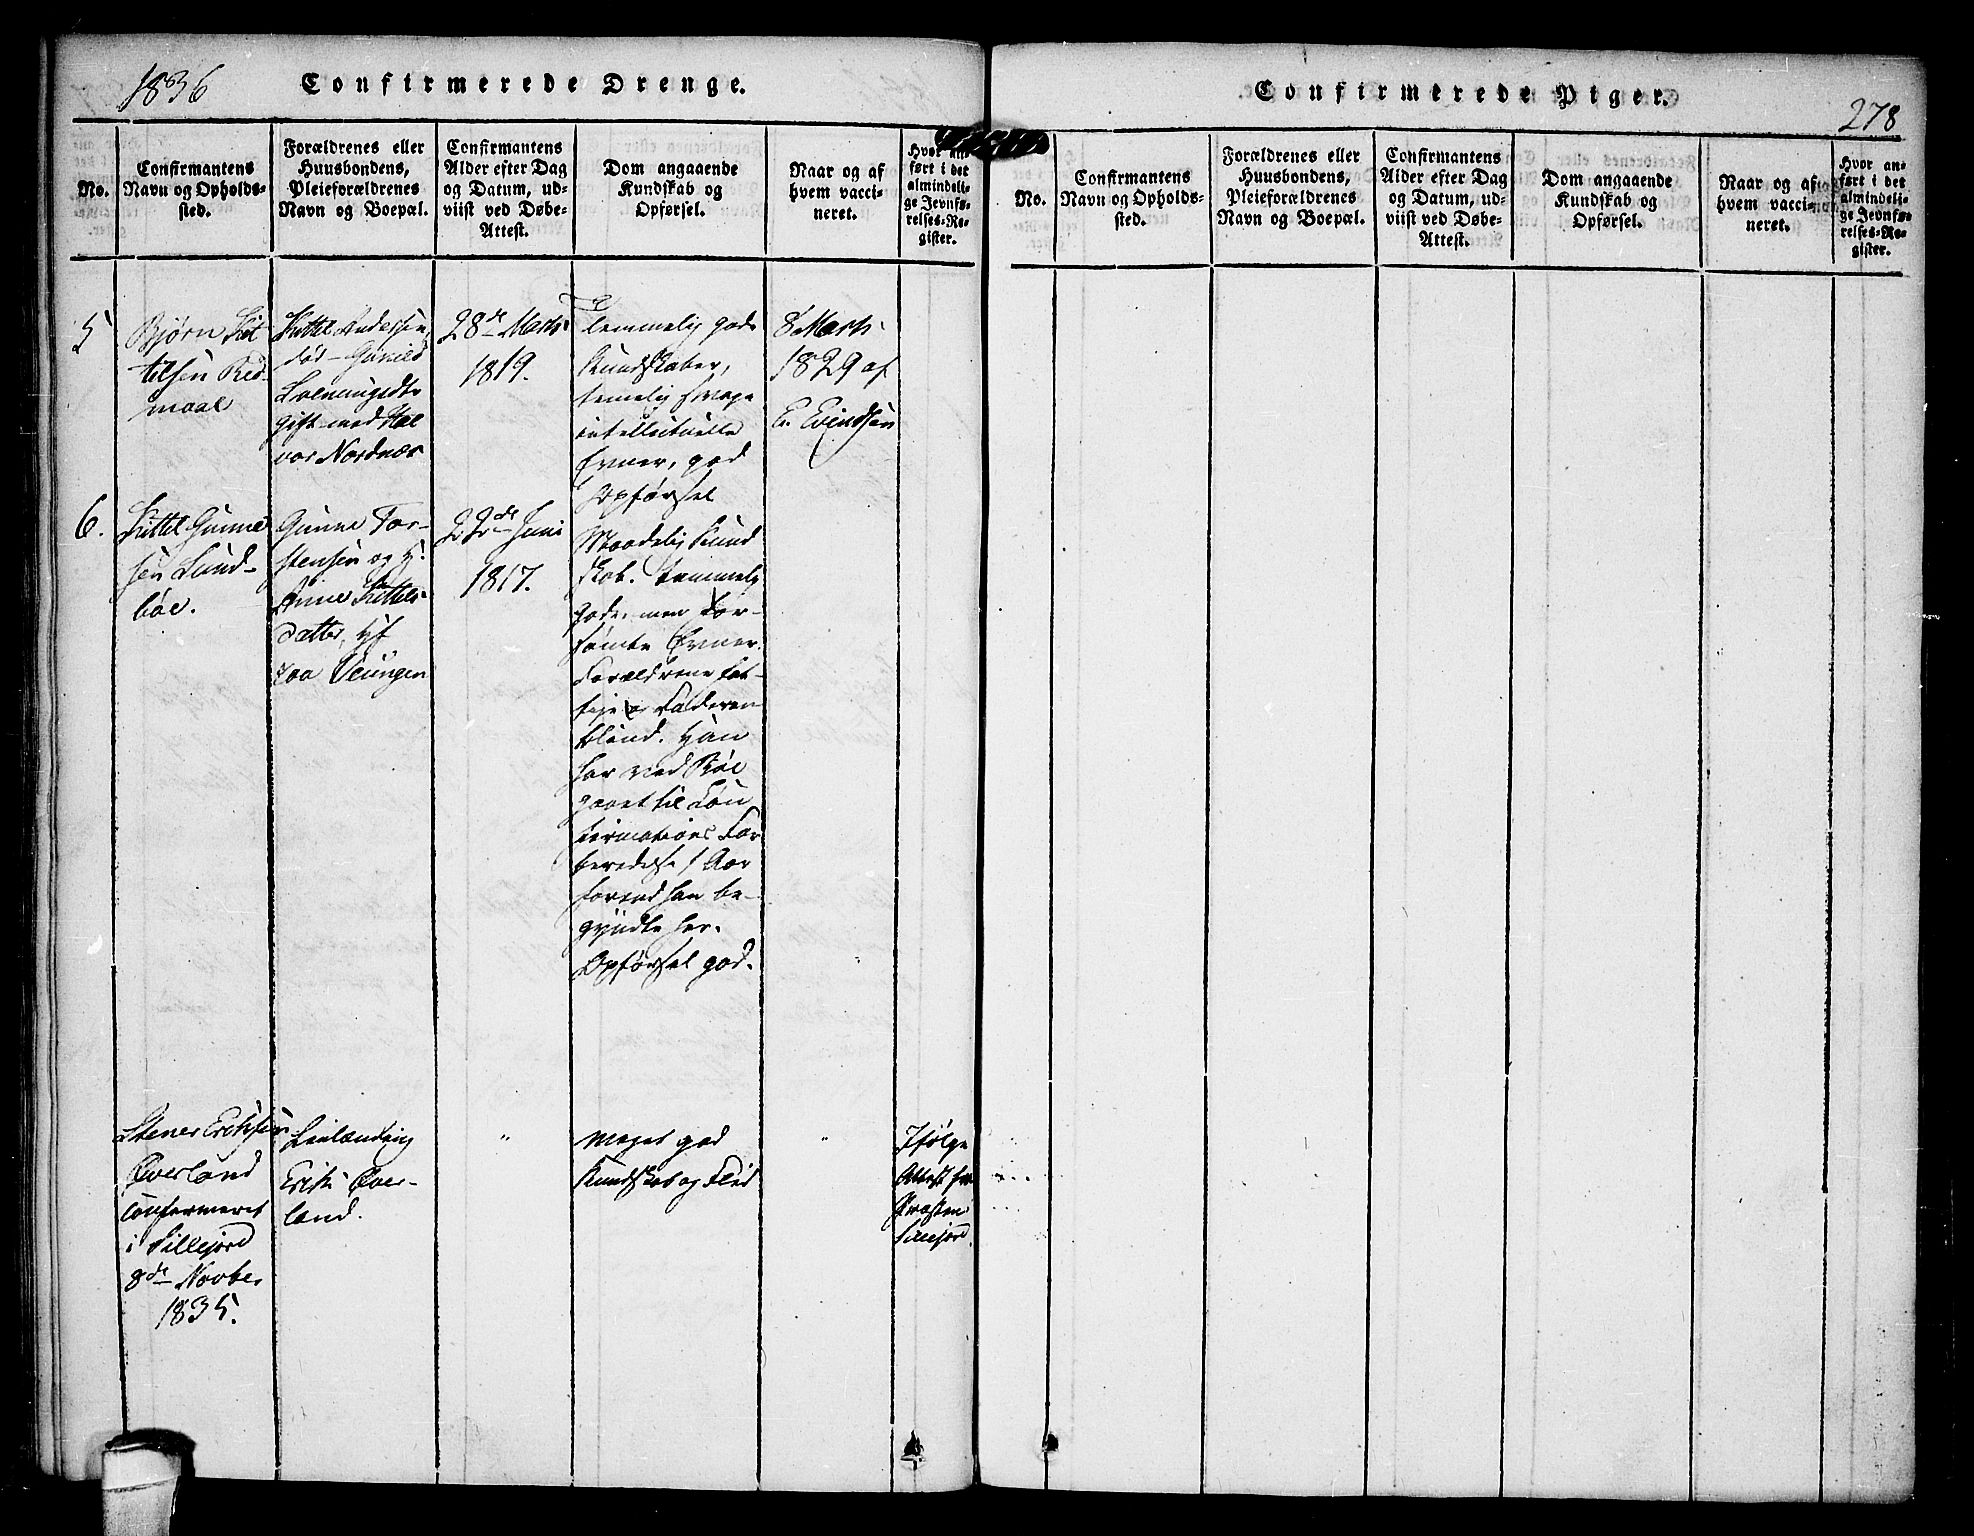 1836
Confirmerede Drenge.
No.
Confirmantens
Navn og Opholds-
sted.
Forældrenes eller
Huusbondens,
Pleieforældrenes
Navn og Boepæl.
Confirmantens
Alder efter Dag
og Datum, ud-
viist ved Døbe-
Attest.
Dom angaaende
Kundskab og
Opførsel.
Naar og af
hvem vacci-
neret.
Hvor an-
ført i det
almindeli-
ge Jevnfø-
relses-Re-
gister.
5
Bjørn Kit
tilsen Red-
maal
Kittil Andersen
Gunild
gift med Hal
vor Nordnæs
28de Marts
1819.
Temmelig gode
Kundskaber,
temelig svage
intellectuelle
Evner, god
Opførsel
8 Marts
1829 af
E. Eivindsen
6.
Kittel Gunne
sen Lund-
böe.
Gunne Tor-
stensen og H:
Anne Kittels-
datter, Hf
paa Veungen
22de Juni
1817.
Maadelig Kund
skab. Temmelig
gode, men For-
sömte Evner.
Forældrene fat-
tige og Faderen
blind. Han
har ved
gaaet til Con
firmations For
beredelse 1 Aar
forend han be-
gyndte her.
Opførsel god.
Stener Erichsen
Överland
confirmeret
i Sillejord
8de Novber
1835.
Leilænding
Erik Över-
land.
"
meget god
Kundskab og Flid
"
Ifølge
Attest fra
Præsten
Sillejord.
Confirmerede Piger.
278
No.
Confirmantens
Navn og Opholds-
sted.
Forældrenes eller
Huusbondens,
Pleieforældrenes
Navn og Boepæl.
Confirmantens
Alder efter Dag
og Datum, ud-
viist ved Døbe-
Attest.
Dom angaaende
Kundskab og
Opførsel.
Naar og af
hvem vacci-
neret.
Hvor an-
ført i det
almindeli-
ge Jevnfø-
relses-Re-
gister.